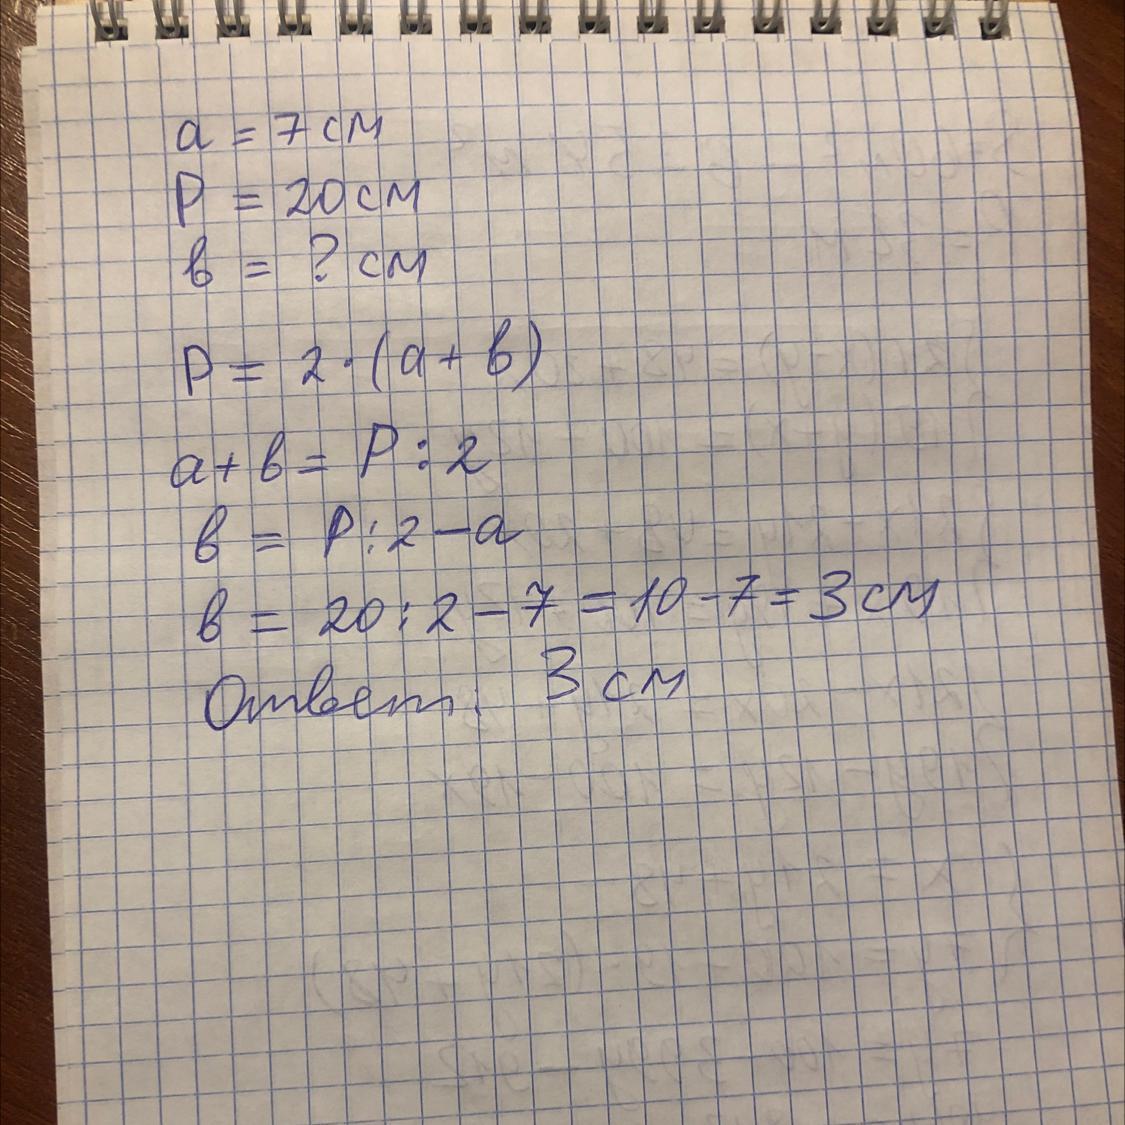 a = 7 см
P = 20 см
в = ? см
P = 2 · (a + в)
a + в = P : 2
в = P : 2 - a
в = 20 : 2 - 7 = 10 - 7 = 3 см
Ответ: 3 см